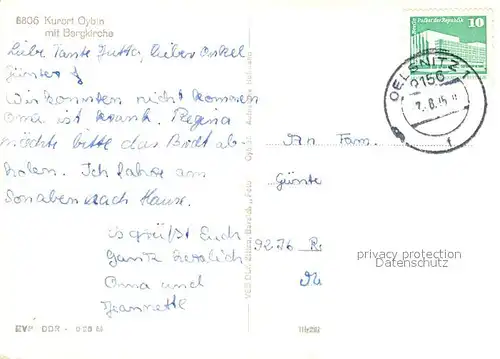 8806 Kurort Oybin
mit Bergkirche
Liebe Tante Jutta, lieber Onkel
Günter!
Wir konnten nicht kommen
Oma ist krank. Regina
möchte bitte das Brot ab
holen. Ich fahre am
Sonabend nach Hause.
es grüßt Euch
ganz herzlich
Oma und
Jeannette
EVP DDR - 0,20 M
Palast der Republik
10
OELSNITZ 1
9156
An Fam.
Günte
9276 R
privacy protection
Datenschutz